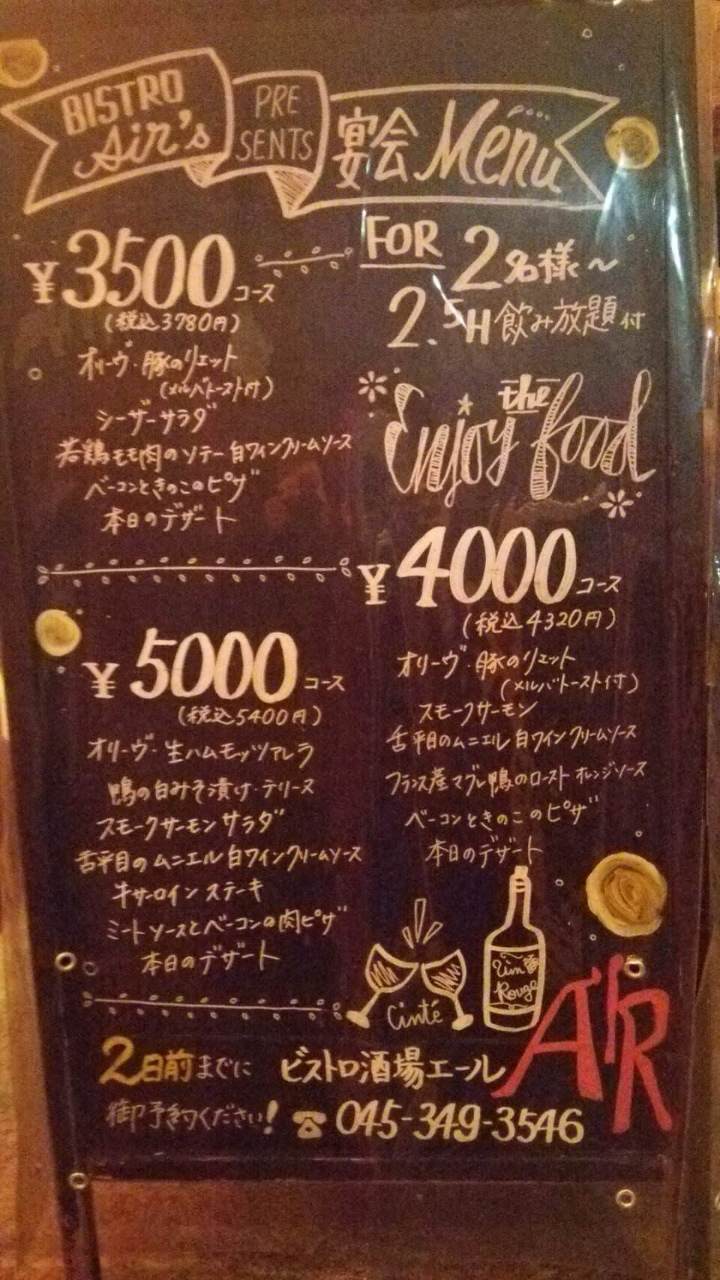 BISTRO Air's PRESENTS 宴会 Menu
¥3500コース
(税込3780円)
オリーヴ・豚のリエット
(メルバトースト付)
シーザーサラダ
若鶏モモ肉のソテー 白ワインクリームソース
ベーコンときのこのピザ
本日のデザート
FOR 2名様〜
2.5H飲み放題付
Enjoy the food
¥4000コース
(税込4320円)
オリーヴ・豚のリエット
(メルバトースト付)
スモークサーモン
舌平目のムニエル 白ワインクリームソース
フランス産マグレ鴨のロースト オレンジソース
ベーコンときのこのピザ
本日のデザート
¥5000コース
(税込5400円)
オリーヴ・生ハムモッツァレラ
鴨の白みそ漬け・テリーヌ
スモークサーモンサラダ
舌平目のムニエル 白ワインクリームソース
牛サーロインステーキ
ミートソースとベーコンの肉ピザ
本日のデザート
Cinté
Vin
Rouge
2日前までに
御予約ください!
ビストロ酒場エール
☎ 045-349-3546
AIR